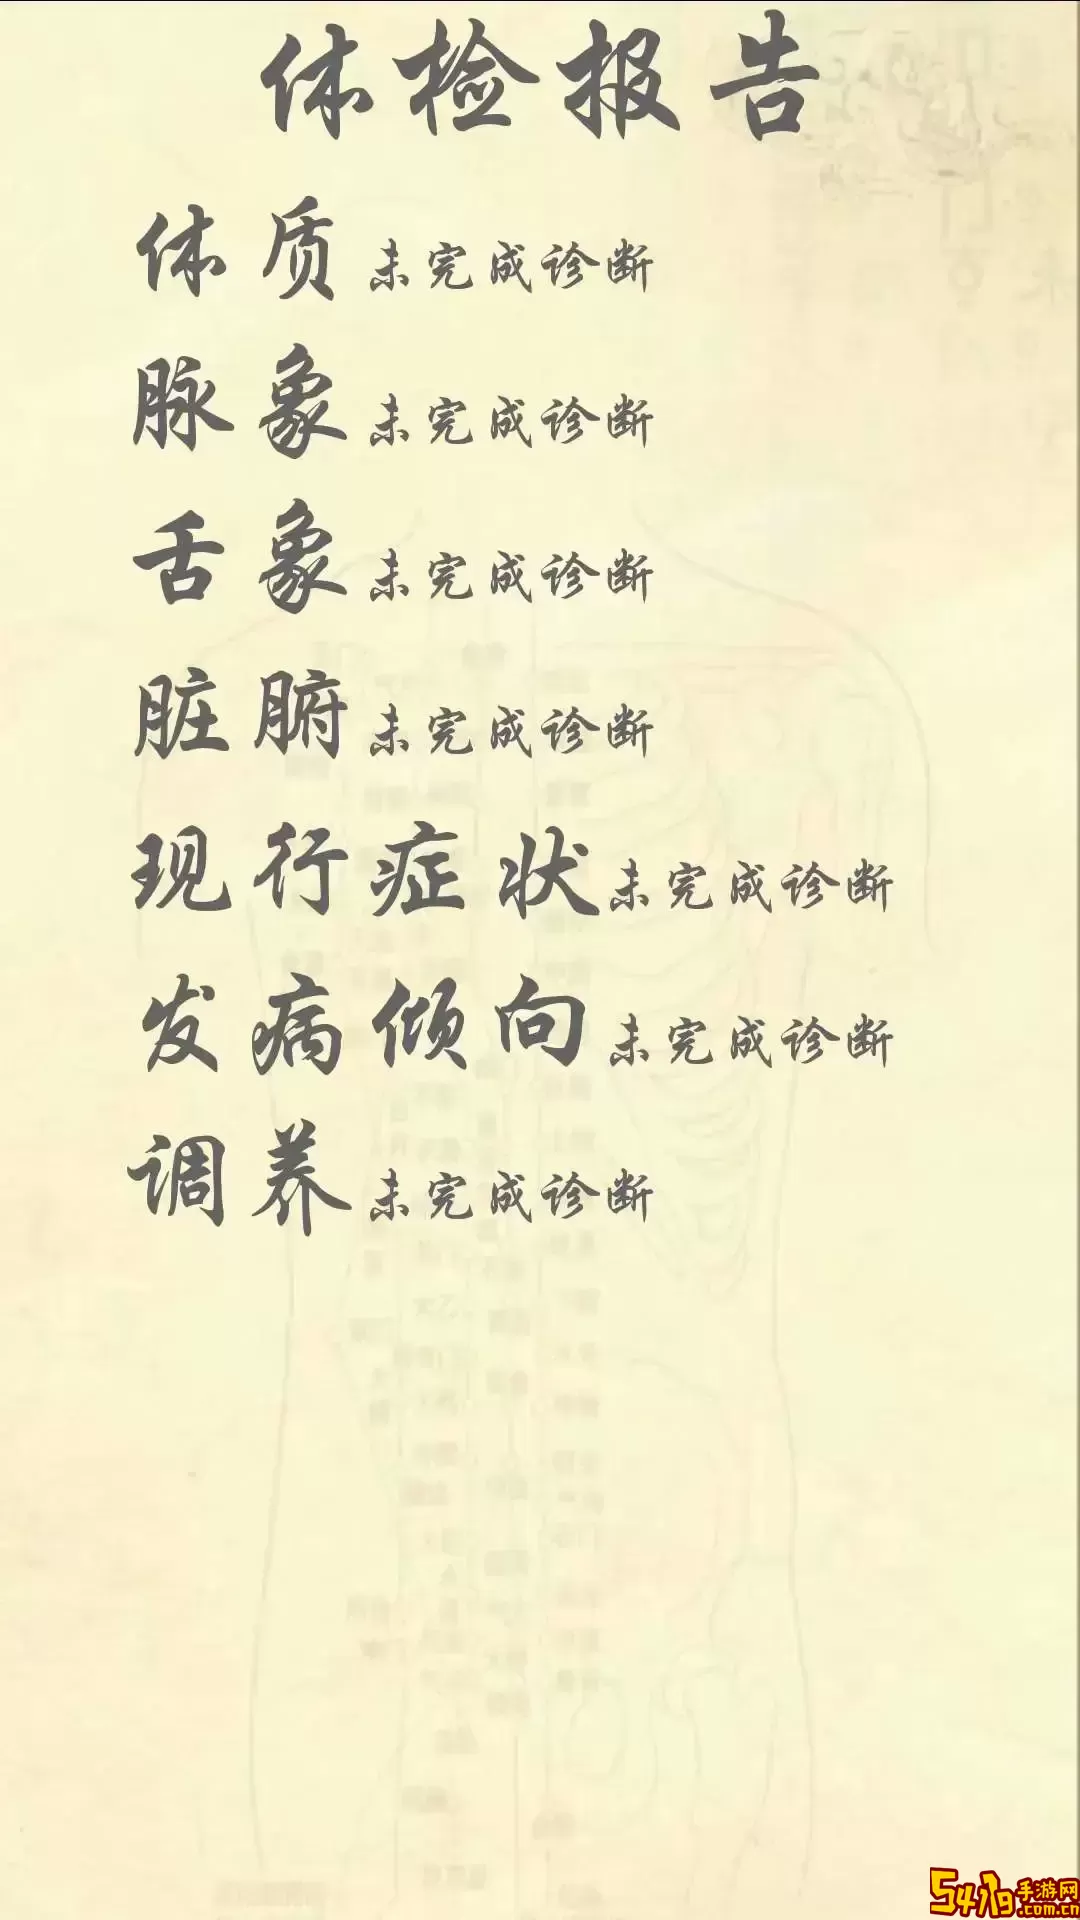 体检报告
体质 未完成诊断
脉象 未完成诊断
舌象 未完成诊断
脏腑 未完成诊断
现行症状 未完成诊断
发病倾向 未完成诊断
调养 未完成诊断
手游网
.com.cn